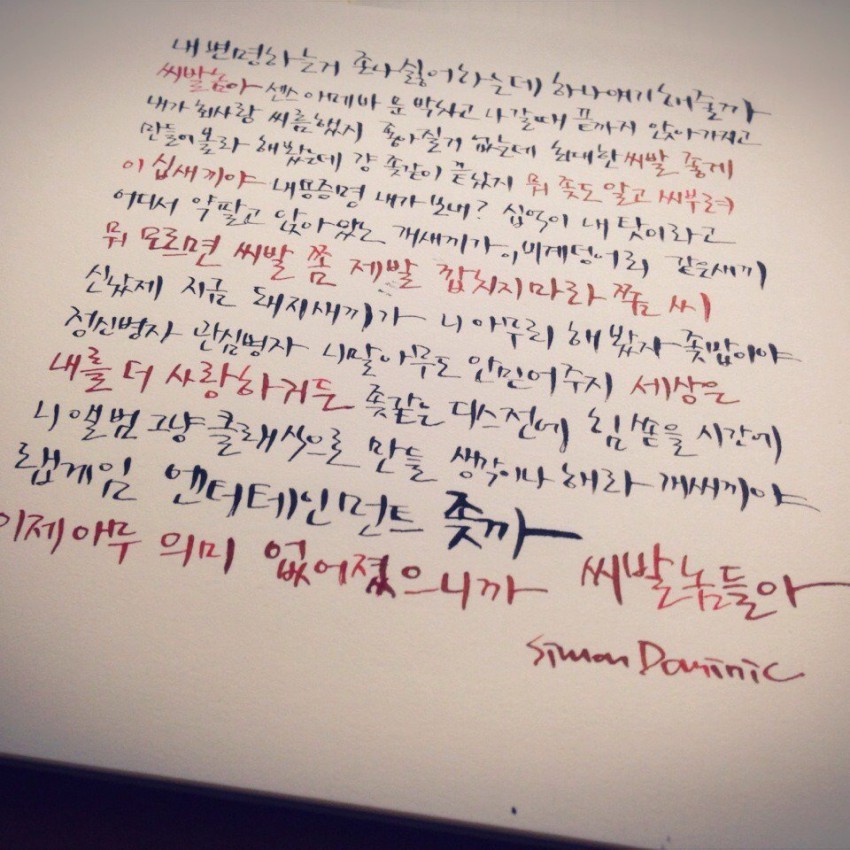 내 변명하는거 존나 싫어하는데 하나 얘기해줄까
씨발놈아 센스 아메바 문 박차고 나갈때 끝까지 앉아가지고
내가 회사랑 씨름했지 좋아 실거 없는데 최대한 씨발 좋게
만들어볼라 해봤는데 걍 좆같이 끝났지 뭐 좆도 알고 씨부려
이 십새끼야 내용증명 내가 보내? 십억이 내 탓이라고
어디서 약팔고 앉아있노 개새끼가, 비계덩어리 같은새끼
뭐 모르면 씨발 쫌 제발 깝치지마라 쫌 씨
신났제 지금 돼지새끼가 니 아무리 해봤자 좆밥이야
정신병자 관심병자 니말 아무도 안믿어주지 세상은
내를 더 사랑하거든 좆같은 디스전에 힘 쏟을 시간에
니 앨범 그냥 클래식으로 만들 생각이나 해라 개쌔끼야
랩게임 엔터테인먼트 좆까
이제 아무 의미 없어졌으니까 씨발놈들아
Simon Dominic